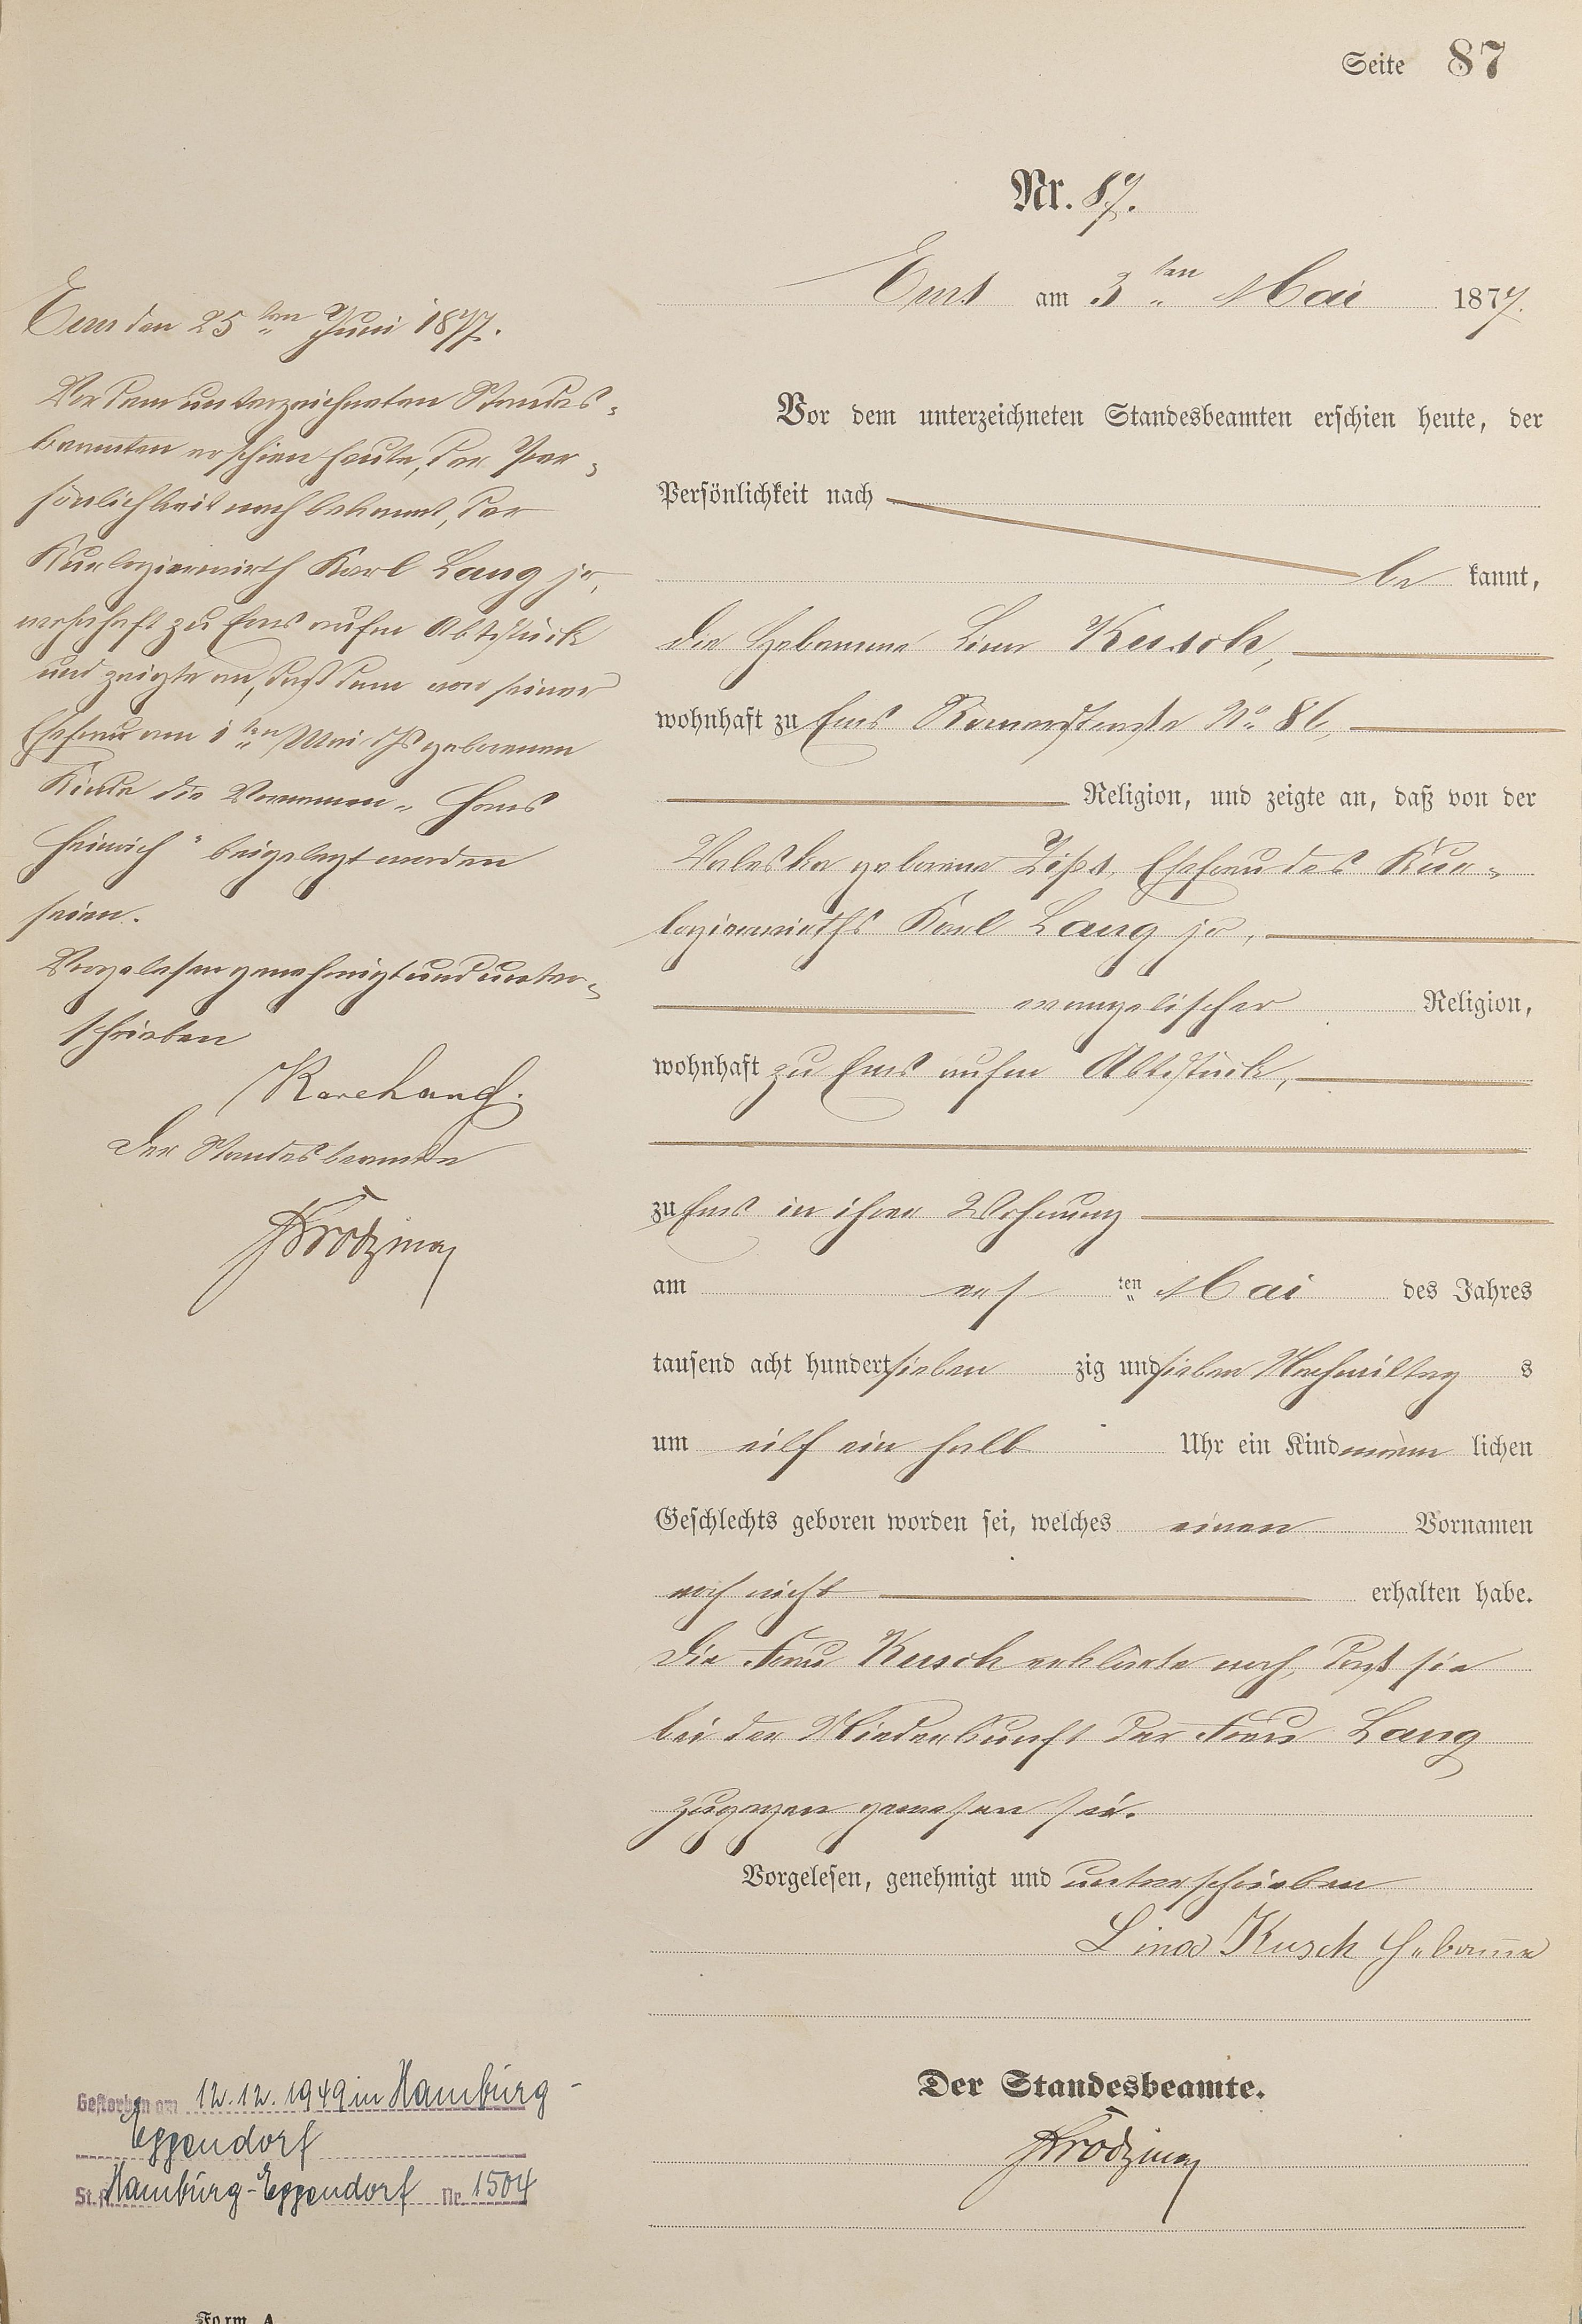 Seite 87
Nr. 87.
Ems am 3ten Mai 1877.
Vor dem unterzeichneten Standesbeamten erschien heute, der
Persönlichkeit nach
be kannt,
die Hebamme Lina Kusch,
wohnhaft zu Ems Römerstraße No. 86,
Religion, und zeigte an, daß von der
Valeska geborene Ehefrau des Kur-
logierwirths Karl Lang jr,
evangelischer Religion,
wohnhaft zu Ems aufm Abtstück,
zu Ems in ihrer Wohnung
am ers ten Mai des Jahres
tausend acht hundert sieben zig und sieben Nachmittag s
um eilf ein halb Uhr ein Kind männ lichen
Geschlechts geboren worden sei, welches einen Vornamen
noch nicht erhalten habe.
Die Frau Kusch erklärte noch, daß sie
bei der Niederkunft der Frau Lang
zugegen gewesen sei.
Vorgelesen, genehmigt und unterschrieben
Lina Kusch Hebamme
Der Standesbeamte.
Ems den 25ten Juni 1877.
Vor dem unterzeichneten Standes-
beamten erschien heute, der Per-
sönlichkeit nach bekannt, der
Kurlogierwirth Karl Lang jr,
wohnhaft zu Ems aufm Abtstück
und zeigte an, daß dem von seiner
Ehefrau am 1ten Mai ds geborenen
Kinde die Vornamen „Hans
Heinrich" beigelegt worden
seien.
Vorgelesen genehmigt und unter-
schrieben
Der Standesbeamte
Gestorben am 12.12.1949 in Hamburg-
Eppendorf
St.A. Hamburg-Eppendorf Nr. 1504
Form. A